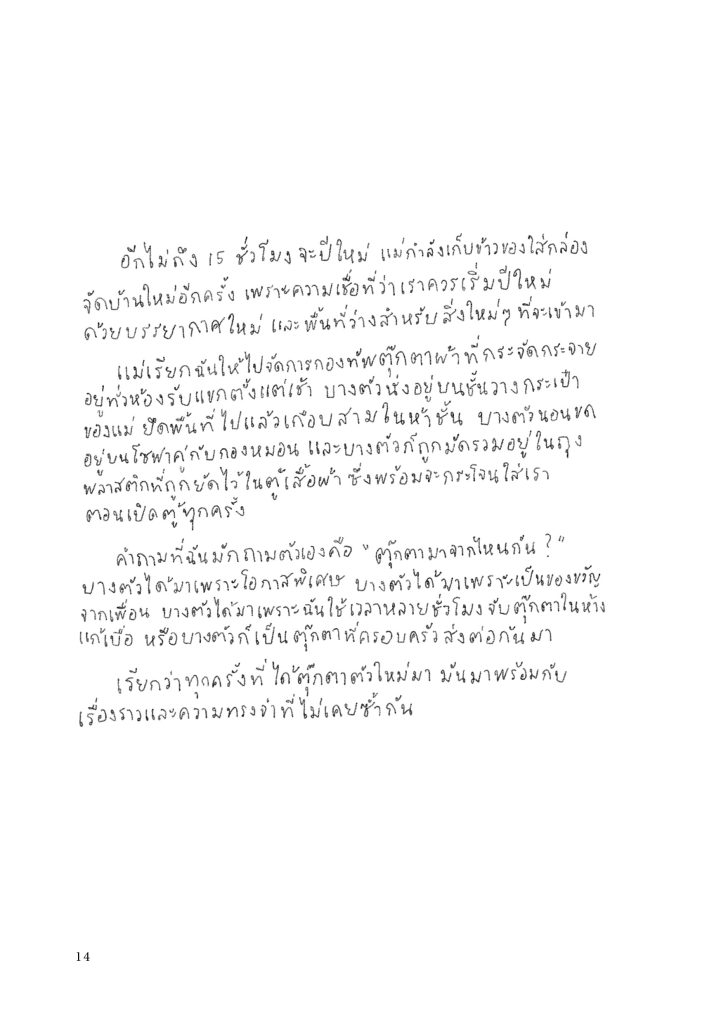 อีกไม่ถึง 15 ชั่วโมงจะปีใหม่ แม่กำลังเก็บข้าวของใส่กล่อง
จัดบ้านใหม่อีกครั้ง เพราะความเชื่อที่ว่าเราควรเริ่มปีใหม่
ด้วยบรรยากาศใหม่ และพื้นที่ว่างสำหรับสิ่งใหม่ๆ ที่จะเข้ามา
แม่เรียกฉันให้ไปจัดการกองทัพตุ๊กตาผ้าที่กระจัดกระจาย
อยู่ทั่วห้องรับแขกตั้งแต่เช้า บางตัวนั่งอยู่บนชั้นวางกระเป๋า
ของแม่ ยึดพื้นที่ไปแล้วเกือบสามในห้าชั้น บางตัวนอนขด
อยู่บนโซฟาคู่กับกองหมอน และบางตัวก็ถูกมัดรวมอยู่ในถุง
พลาสติกที่ถูกยัดไว้ในตู้เสื้อผ้า ซึ่งพร้อมจะกระโจนใส่เรา
ตอนเปิดตู้ทุกครั้ง
คำถามที่ฉันมักถามตัวเองคือ "ตุ๊กตามาจากไหนกัน ?"
บางตัวได้มาเพราะโอกาสพิเศษ บางตัวได้มาเพราะเป็นของขวัญ
จากเพื่อน บางตัวได้มาเพราะฉันใช้เวลาหลายชั่วโมงจับตุ๊กตาในห้าง
แก้เบื่อ หรือบางตัวก็เป็นตุ๊กตาที่ครอบครัวส่งต่อกันมา
เรียกว่าทุกครั้งที่ได้ตุ๊กตาตัวใหม่มา มันมาพร้อมกับ
เรื่องราวและความทรงจำที่ไม่เคยซ้ำกัน
14